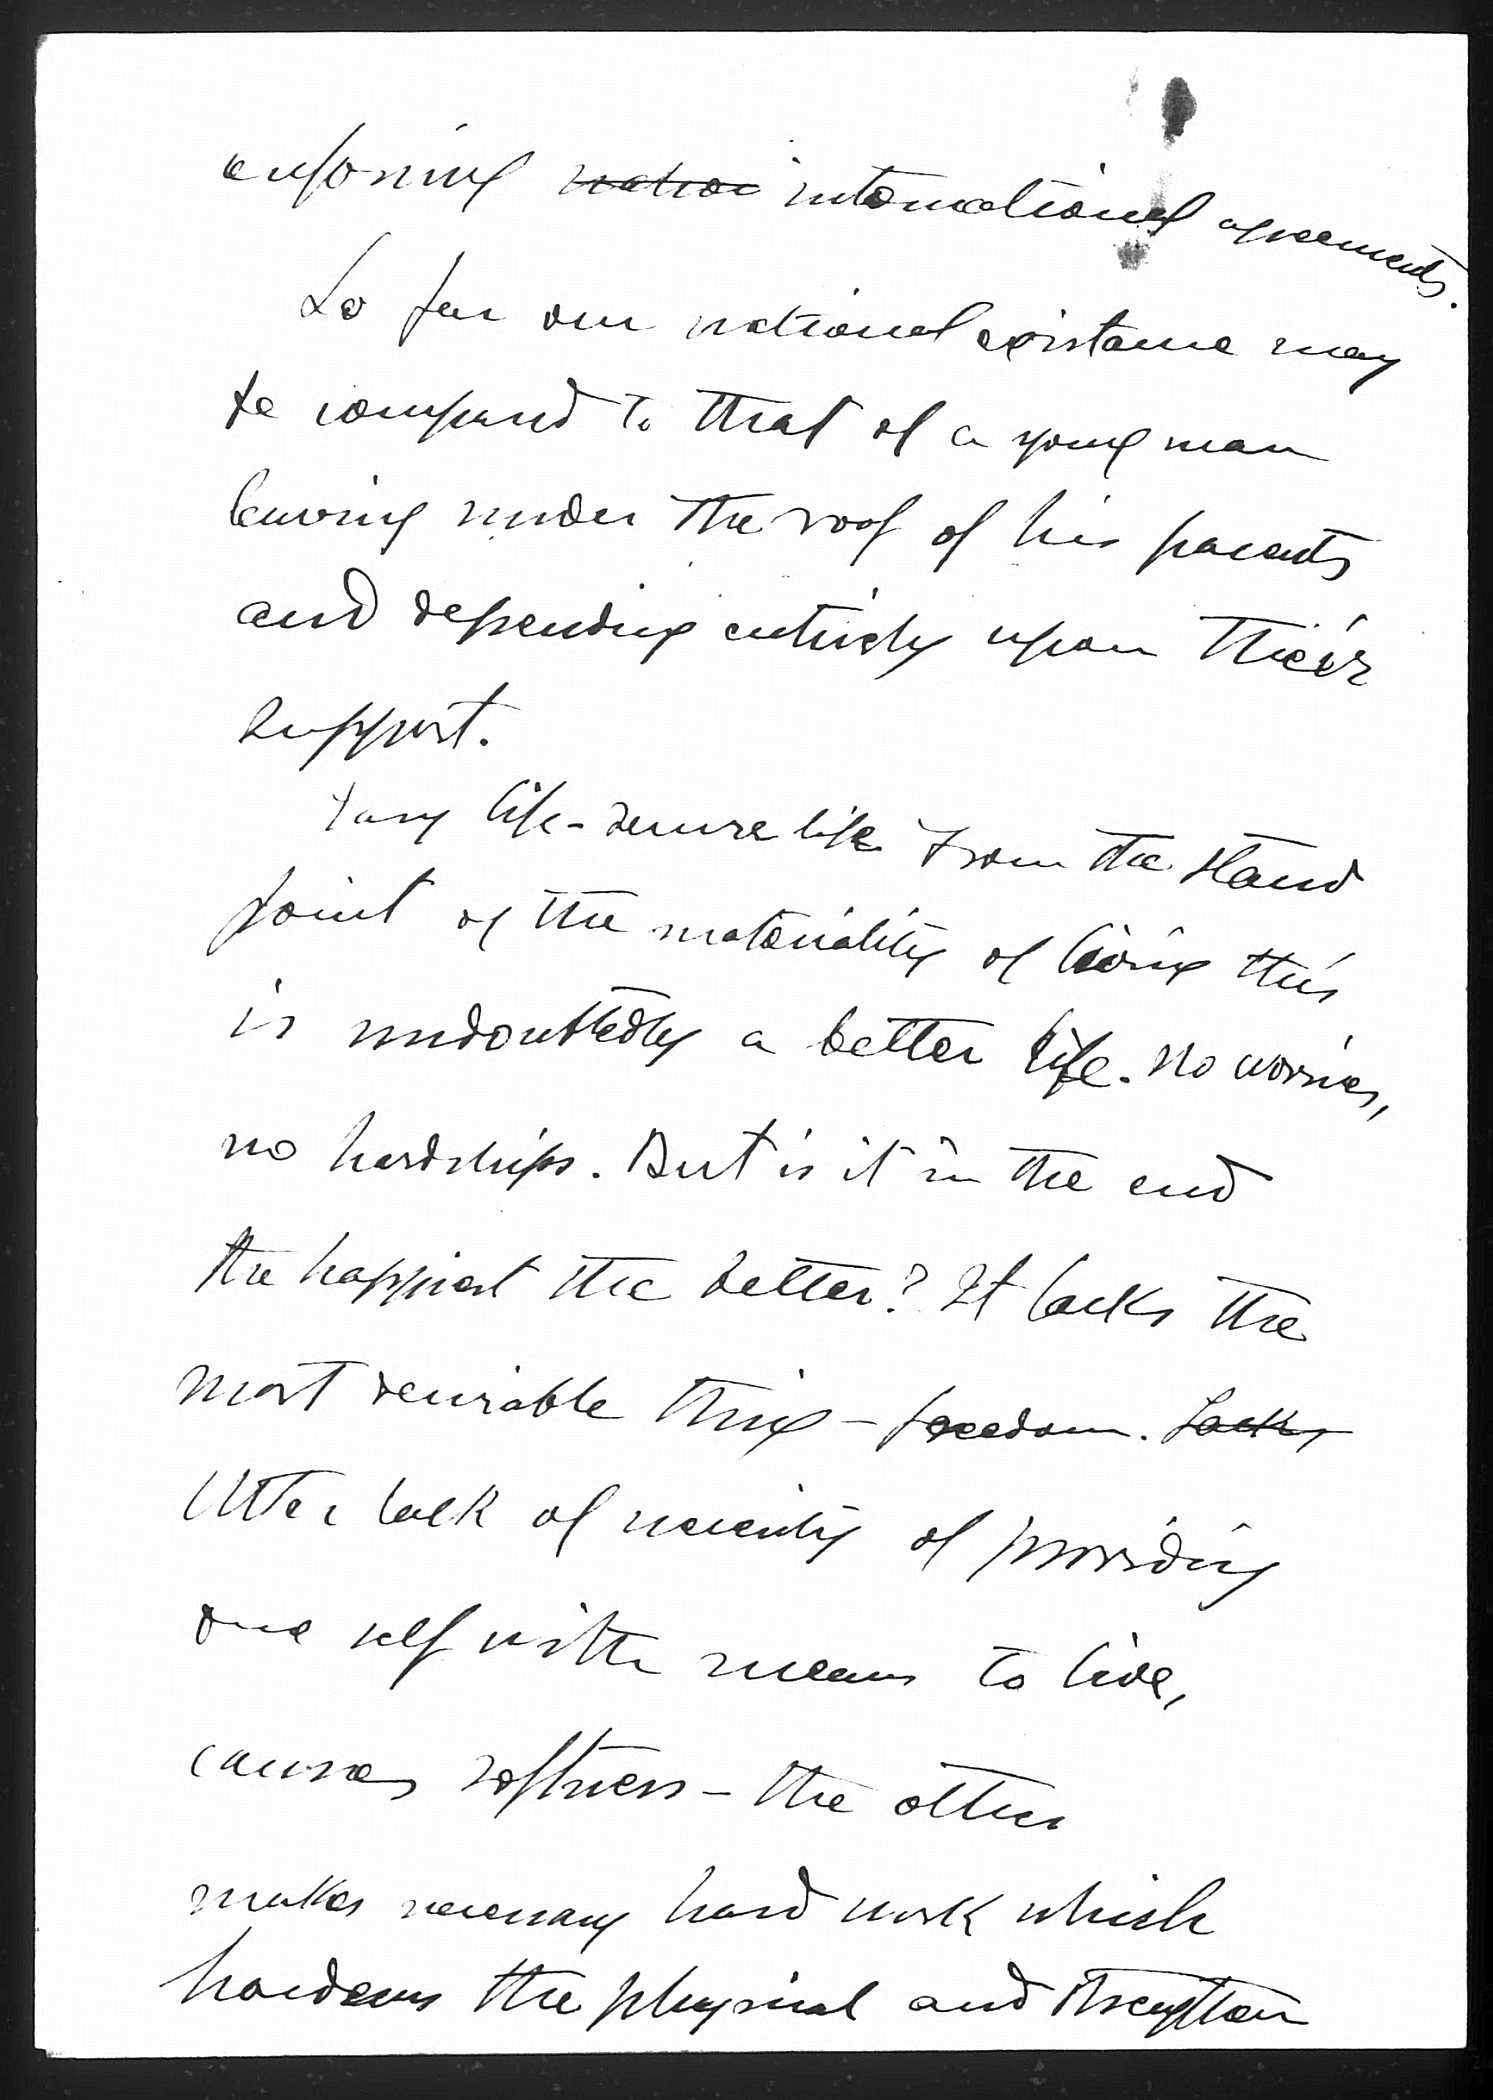 enforcing ~~nation~~ international agreements.
So far our national existance may
be compared to that of a young man
leaving under the roof of his parents
and depending entirely upon their
support.
Easy life - secure life from the stand
point of the materiality of living this
is undoubtedly a better life. No worries,
no hardships. But is it in the end
the happiest the better? It lacks the
most desirable thing - freedom. ~~Lacks~~
Utter lack of necessity of providing
one self with means to live,
causes softness - the other
makes necessary hard work which
hardens the physical and strengthen